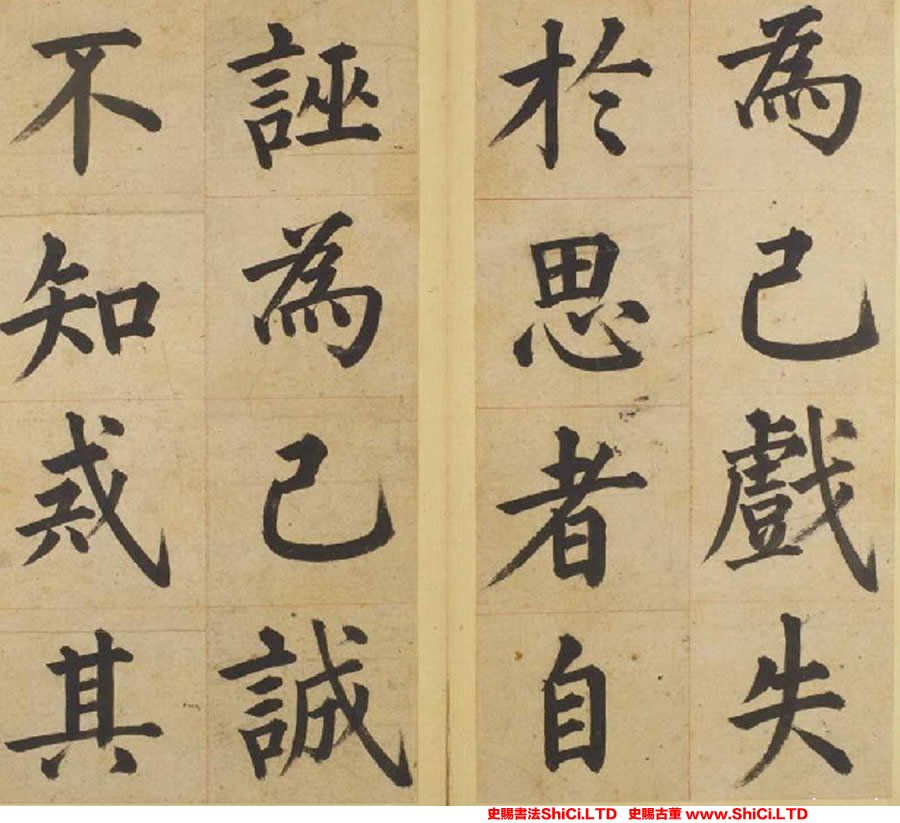 為己戲失
於思者自
誣為己誠
不知戒其
史賜書法ShiCi.LTD 史賜古董 www.ShiCi.LTD